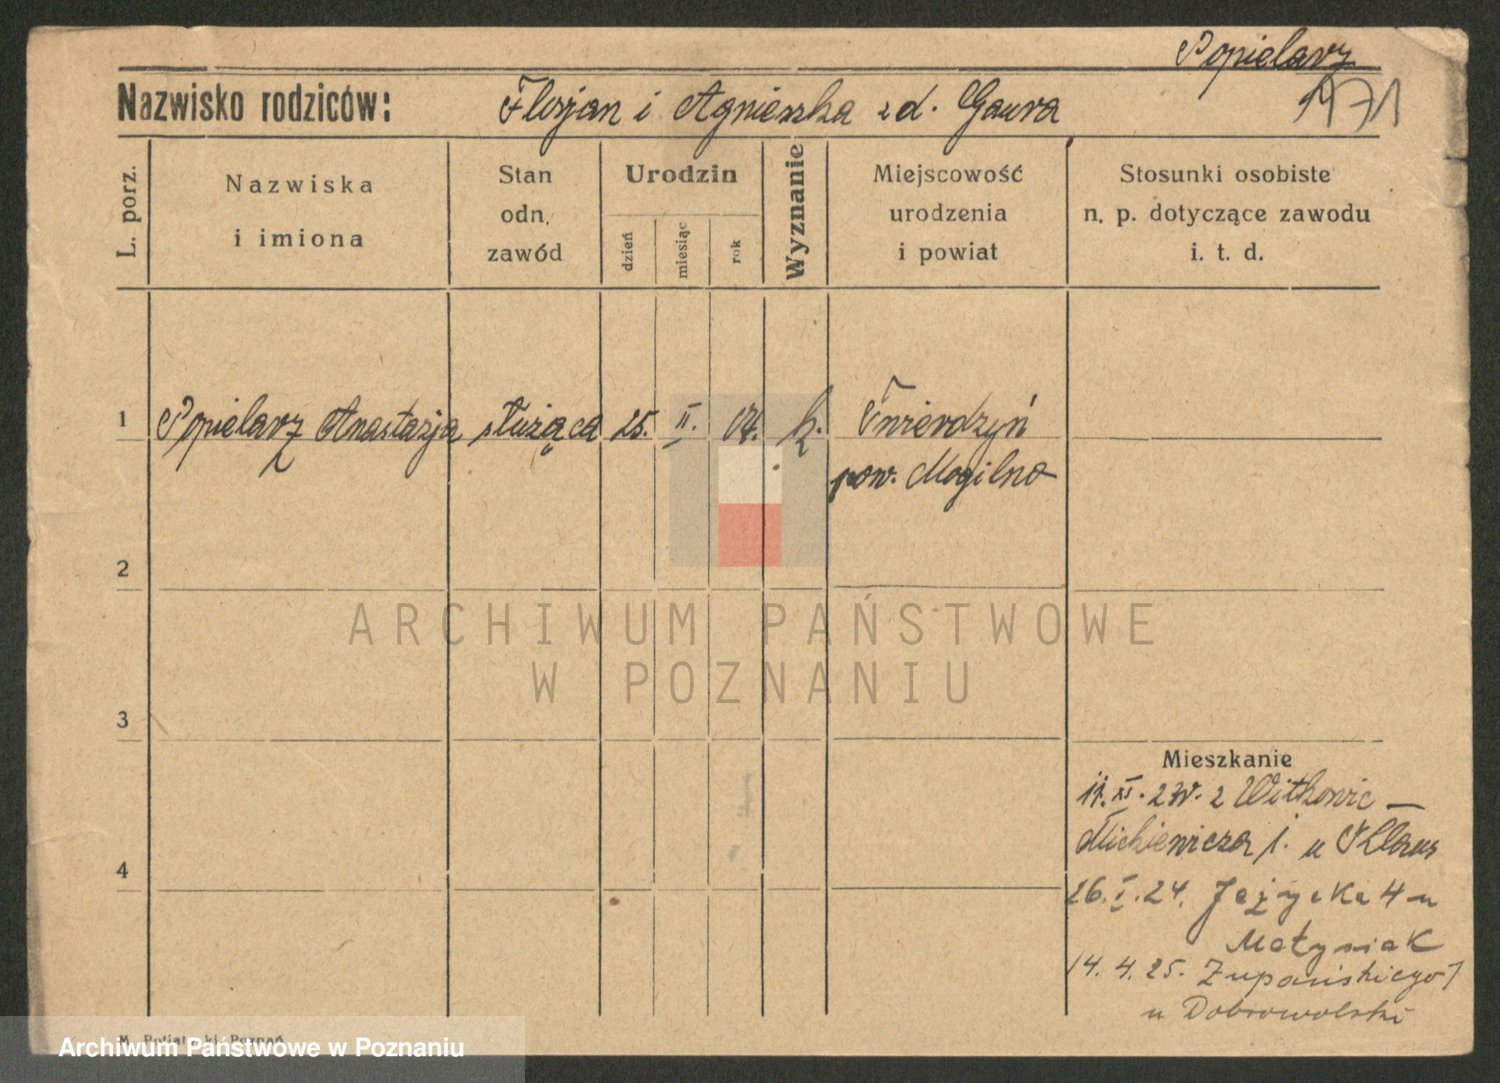 Popielarz
1971
Nazwisko rodziców: Florjan i Agnieszka zd. Gawra
L. porz.
Nazwiska
i imiona
Stan
odn.
zawód
Urodzin
dzień
miesiąc
rok
Wyznanie
Miejscowość
urodzenia
i powiat
Stosunki osobiste
n. p. dotyczące zawodu
i. t. d.
1 Popielarz Anastazja służąca 25. II. 04. k. Twierdzyń
pow. Mogilno
2
3
4
ARCHIWUM PAŃSTWOWE
W POZNANIU
Mieszkanie
XI. 23 z Witkowic
Mickiewicza 1. u
26. I. 24. Jeżycka 4 u
Matysiak
14. 4. 25. Żupańskiego 7
u Dobrowolski
Poznań
Archiwum Państwowe w Poznaniu